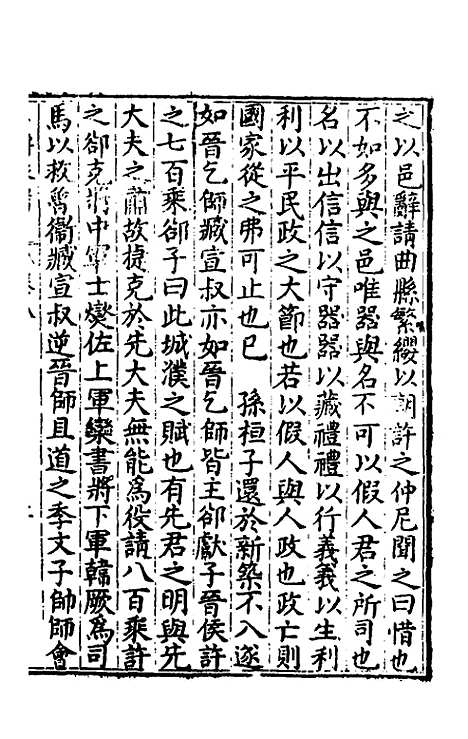 之以邑辭請曲縣繁纓以朝許之仲尼聞之曰惜也
不如多與之邑唯器與名不可以假人君之所司也
名以出信信以守器器以藏禮禮以行義義以生利
利以平民政之大節也若以假人與人政也政亡則
國家從之弗可止也已　孫桓子還於新築不入遂
如晉乞師臧宣叔亦如晉乞師皆主郤獻子晉侯許
之七百乘郤子曰此城濮之賦也有先君之明與先
大夫之肅故捷克於先大夫無能爲役請八百乘許
之郤克將中軍士燮佐上軍欒書將下軍韓厥爲司
馬以救魯衞臧宣叔逆晉師且道之季文子帥師會